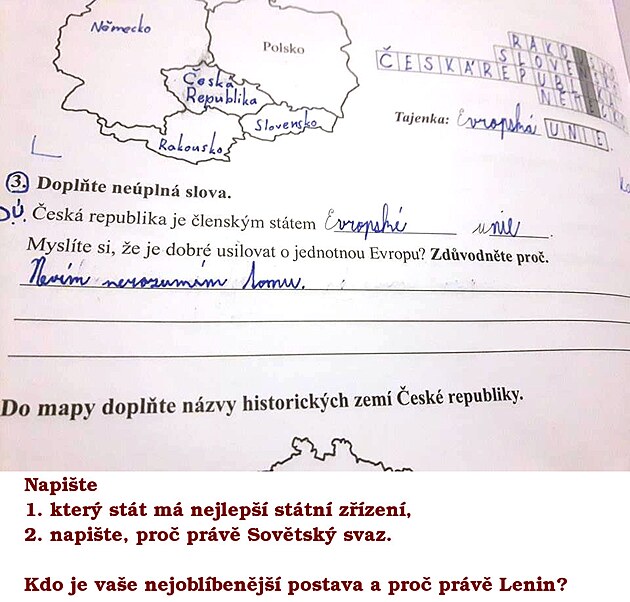 Německo
Polsko
Česká
Republika
Slovensko
Rakousko
RAKO
SLOVE
ČESKÁREPUB
NĚME
Tajenka: Evropská UNIE.
3. Doplňte neúplná slova.
DÚ. Česká republika je členským státem Evropské unie.
Myslíte si, že je dobré usilovat o jednotnou Evropu? Zdůvodněte proč.
Nevím nerozumím tomu.
Do mapy doplňte názvy historických zemí České republiky.
Napište
1. který stát má nejlepší státní zřízení,
2. napište, proč právě Sovětský svaz.
Kdo je vaše nejoblíbenější postava a proč právě Lenin?